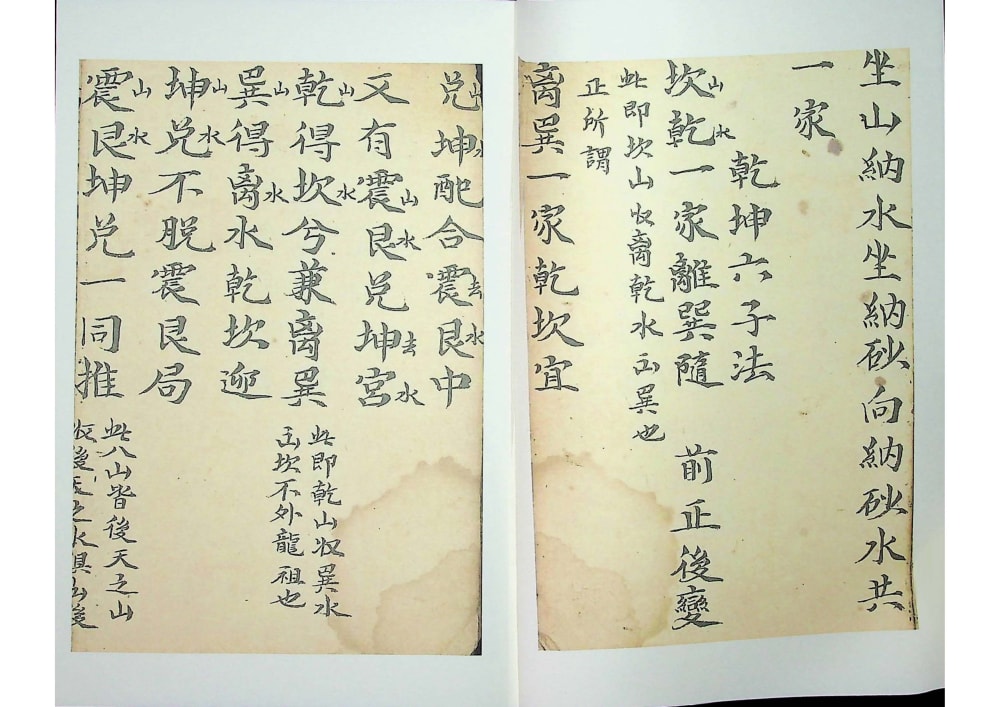 坐山納水坐納砂向納砂水共
一家
乾坤六子法
坎山乾水一家離巽隨 前正後變
此即坎山収离乾水出巽也
正所謂
离巽一家乾坎宜
兑山坤水配合震去艮水中
又有震山艮水兑去坤水宮
乾山得坎水兮兼离巽
此即乾山収巽水
出坎不外龍祖也
巽山得离水水乾坎迎
坤山兑水不脱震艮局
震山艮水坤兑一同推
此八山皆後天之山
収後天之水俱出後